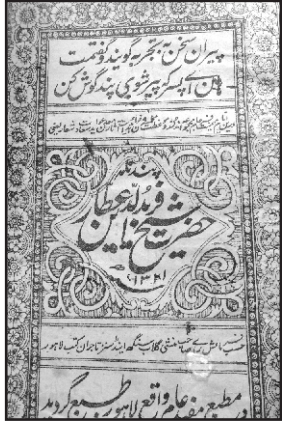 پیران سخن به تجربه گویند و گفتمت
هان اے پسر کہ پیر شوی پند گوش کن
پندنامہ
حضرت شیخ فریدالدین عطار
۱۳۲۱
حسب فرمایش رائے صاحب منشی گلاب سنگھ اینڈ سنز تاجران کتب لاہور
در مطبع مفید عام واقع لاہور طبع گردید